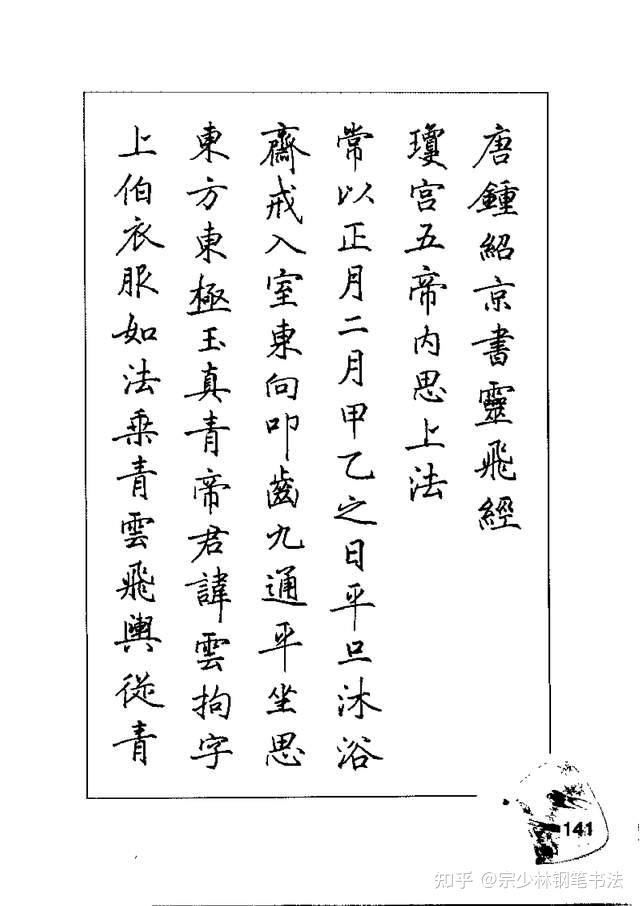 唐鍾紹京書靈飛經
瓊宮五帝内思上法
常以正月二月甲乙之日平旦沐浴
齋戒入室東向叩齒九通平坐思
東方東極玉真青帝君諱雲拘字
上伯衣服如法乗青雲飛輿從青
141
知乎 @宗少林钢笔书法